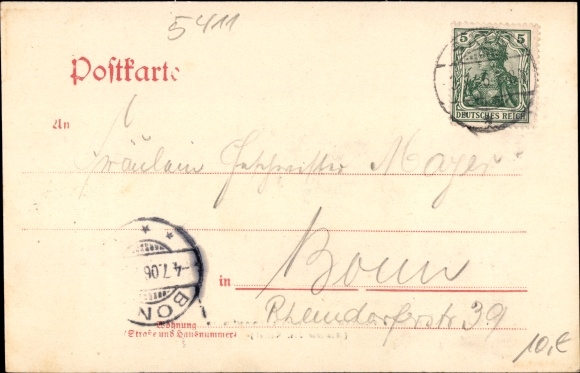 5411
Postkarte
5 5
DEUTSCHES REICH
An
Fräulein Geschwister Mayer
Bonn
in
4.7.06
BON
Rheindorferstr 39
Wohnung
(Straße und Hausnummer)
10,€